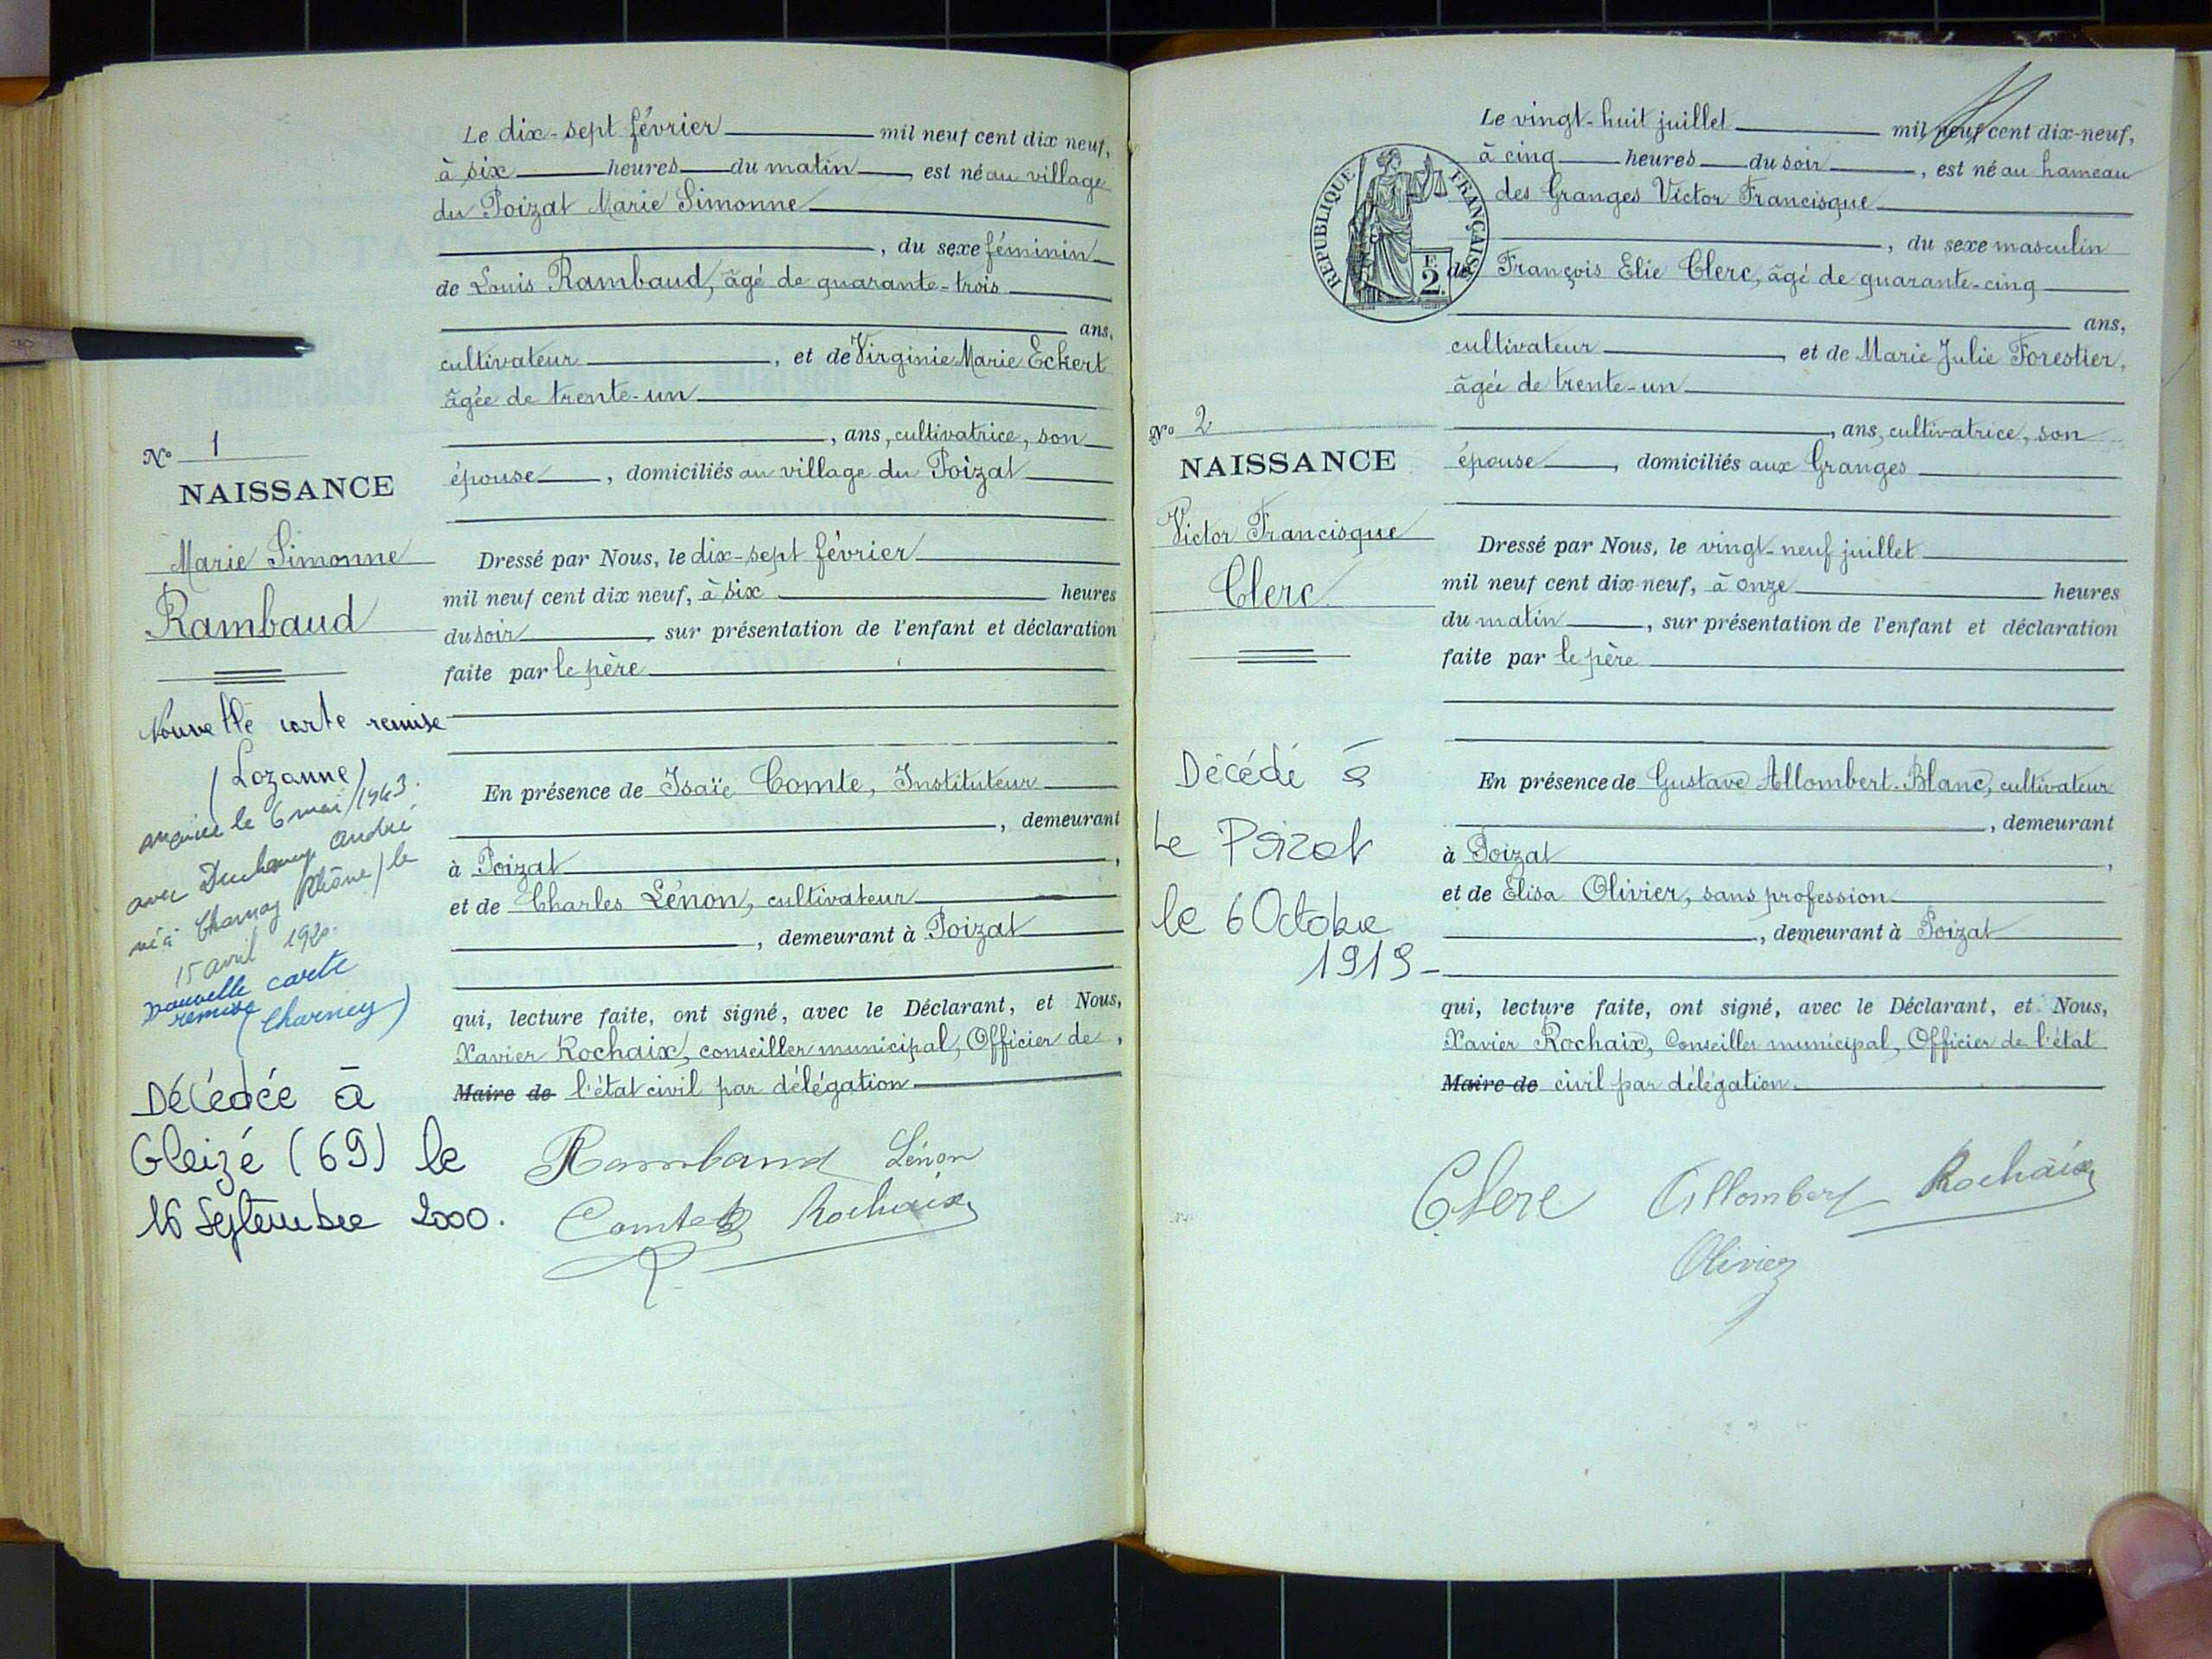 Le dix-sept février mil neuf cent dix neuf,
à six heures du matin, est né au village
du Poizat Marie Simonne
, du sexe féminin
de Louis Rambaud, âgé de quarante-trois
ans,
cultivateur, et de Virginie Marie Eckert
âgée de trente-un
, ans, cultivatrice, son
épouse, domiciliés au village du Poizat
Dressé par Nous, le dix-sept février
mil neuf cent dix neuf, à six heures
du soir, sur présentation de l'enfant et déclaration
faite par le père
En présence de Isaïe Comte, Instituteur
, demeurant
à Poizat,
et de Charles Lénon, cultivateur
, demeurant à Poizat
qui, lecture faite, ont signé, avec le Déclarant, et Nous,
Xavier Rochaix, conseiller municipal, Officier de,
Maire de l'état civil par délégation
Rambaud Lénon
Comte Rochaix
No 1
NAISSANCE
Marie Simonne
Rambaud
Nouvelle carte remise
(Lozanne)
mariée le 6 mai 1943.
avec André,
né à Charnay (Rhône) le
15 avril 1920.
nouvelle carte
remise
(Charney)
Décédée à
Gleizé (69) le
16 Septembre 2000.
Le vingt-huit juillet mil neuf cent dix-neuf,
à cinq heures du soir, est né au hameau
des Granges Victor Francisque
, du sexe masculin
de François Elie Clerc, âgé de quarante-cinq
ans,
cultivateur, et de Marie Julie Forestier,
âgée de trente-un
, ans, cultivatrice, son
épouse, domiciliés aux Granges
Dressé par Nous, le vingt-neuf juillet
mil neuf cent dix neuf, à onze heures
du matin, sur présentation de l'enfant et déclaration
faite par le père
En présence de Gustave Allombert-Blanc, cultivateur
, demeurant
à Poizat,
et de Elisa Olivier, sans profession
, demeurant à Poizat
qui, lecture faite, ont signé, avec le Déclarant, et Nous,
Xavier Rochaix, Conseiller municipal, Officier de l'état
Maire de civil par délégation.
Clerc Allombert Rochaix
Olivier
REPUBLIQUE FRANÇAISE
F.
2.
No 2
NAISSANCE
Victor Francisque
Clerc
Décédé à
Le Poizat
le 6 Octobre
1919